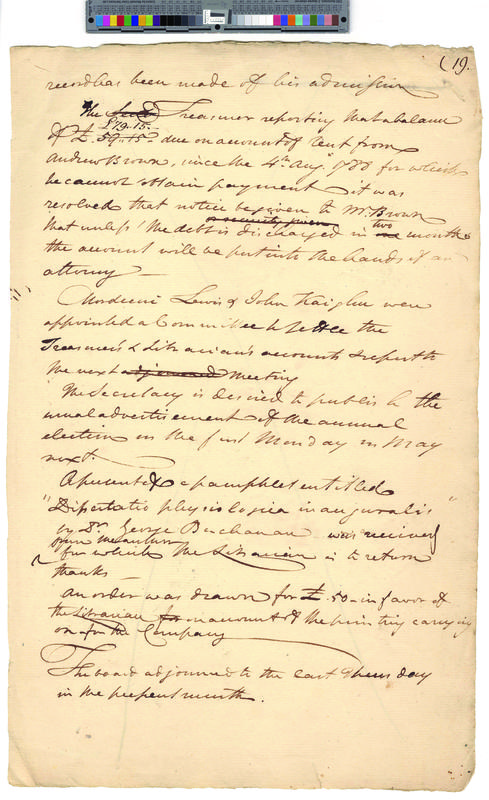 (19.
record has been made of his admission
The Treasurer reporting that a balance
£19.15.
of £.59..15s due on account of rent from
Andrew Brown, since the 4th Augt 1788 for which
he cannot obtain payment it was
resolved that notice be given to Mr. Brown
or security given two
that unless the debt is discharged in one months
the account will be put into the hands of an
attorney —
Mordecai Lewis & John Kaighn were
appointed a Committee to settle the
Treasurer's & Librarian's accounts & report to
the next adjourned meeting
The Secretary is desired to publish the
usual advertisement of the annual
election on the first Monday in May
next.
A present of a pamphlet entitled
"Dissertatio physiologica inauguralis"
by Dr. George Buchanan was received
from the author
for which the Librarian is to return
thanks —
An order was drawn for £.50 — in favor of
the Librarian for on account of the printing carrying
on for the Company
The board adjourned to the last Thursday
in the present month.